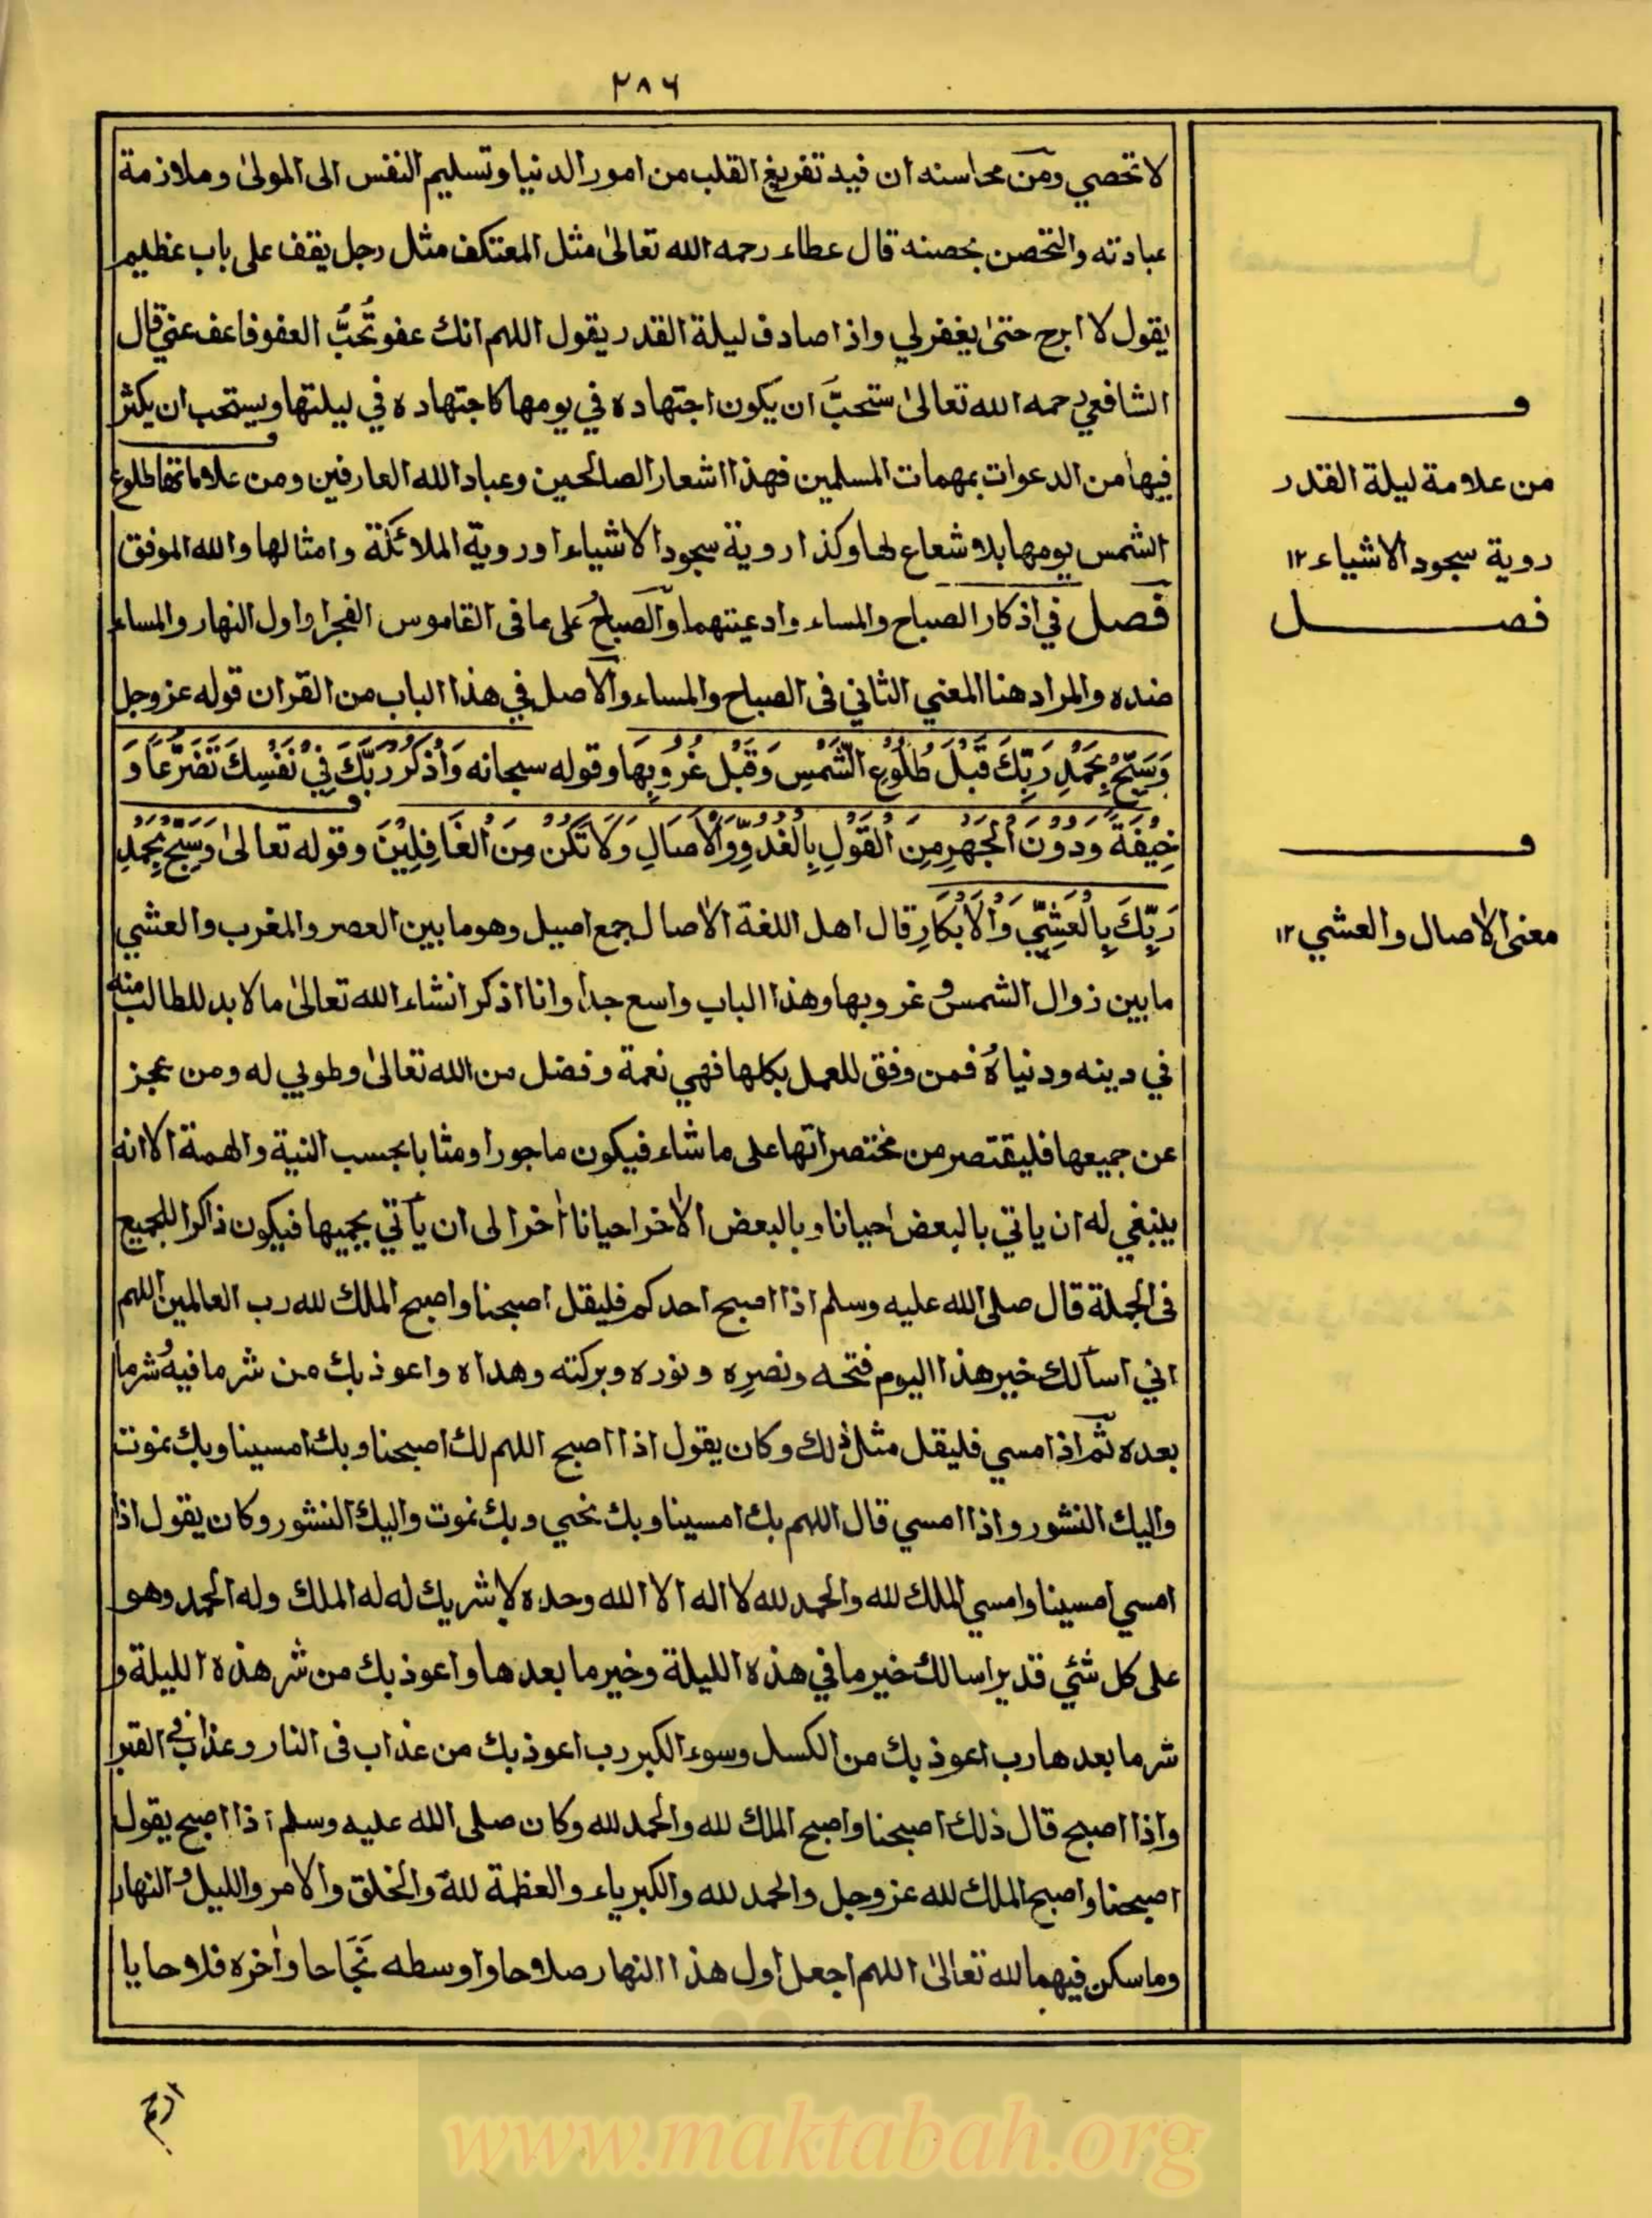 ٢٨٦
لا تحصي ومن محاسنه ان فيه تفريغ القلب من امور الدنيا وتسليم النفس الى المولىٰ وملازمة
عبادته والتحصن بحصنه قال عطاء رحمه الله تعالىٰ مثل المعتكف مثل رجل يقف على باب عظيم
يقول لا ابرح حتىٰ يغفر لي واذا صادف ليلة القدر يقول اللهم انك عفو تُحبُّ العفو فاعف عني قال
الشافعي رحمه الله تعالىٰ ستحبَّ ان يكون اجتهاده في يومها كاجتهاده في ليلتها ويستحب ان يكثر
فيها من الدعوات بمهمات المسلمين فهذا اشعار الصالحين وعباد الله العارفين ومن علاماتها طلوع
الشمس يومها بلا شعاع لها وكذا روية سجود الاشياء او روية الملائكة وامثالها والله الموفق
فصل في اذكار الصباح والمساء وادعيتهما والصباحُ على ما فى القاموس الفجر او اول النهار والمساء
ضده والمراد هنا المعني الثاني فى الصباح والمساء والاصل في هذا الباب من القران قوله عز وجل
وَسَبِّحْ بِحَمْدِ رَبِّكَ قَبْلَ طُلُوْعِ الشَّمْسِ وَقَبْلَ غُرُوبِهَا وقوله سبحانه وَاذْكُرْ رَبَّكَ فِيْ نَفْسِكَ تَضَرُّعًا وَ
خِيْفَةً وَدُوْنَ الْجَهْرِ مِنَ الْقَوْلِ بِالْغُدُوِّ وَالْاٰصَالِ وَلَا تَكُنْ مِنَ الْغَافِلِيْنَ وقوله تعالىٰ وَسَبِّحْ بِحَمْدِ
رَبِّكَ بِالْعَشِيِّ وَالْاِبْكَارِ قال اهل اللغة الاٰصال جمع اصيل وهو ما بين العصر والمغرب والعشي
ما بين زوال الشمس و غروبها وهذا الباب واسع جدا وانا اذكر انشاء الله تعالىٰ ما لا بد للطالب منه
في دينه ودنياهُ فمن وفق للعمل بكلها فهي نعمة وفضل من الله تعالىٰ وطوبي له ومن عجز
عن جميعها فليقتصر من مختصراتها على ما شاء فيكون ماجورا ومثابا بحسب النية والهمة الا انه
ينبغي له ان ياتي بالبعض احيانا وبالبعض الاٰخر احيانا اٰخر الى ان يأتي بجميها فيكون ذاكرا للجميع
فى الجملة قال صلى الله عليه وسلم اذا اصبح احدكم فليقل اصبحنا واصبح الملك لله رب العالمين اللهم
اني اسألك خير هذا اليوم فتحه ونصره ونوره وبركته وهداه واعوذ بك من شر ما فيه وشر ما
بعده ثم اذا امسي فليقل مثل ذلك وكان يقول اذا اصبح اللهم لك اصبحنا وبك امسينا وبك نموت
واليك النشور واذا امسي قال اللهم بك امسينا وبك نحيي وبك نموت واليك النشور وكان يقول اذا
امسي امسينا وامسي الملك لله والحمد لله لا اله الا الله وحده لا شريك له له الملك وله الحمد وهو
على كل شئي قدير اسالك خير ما في هذه الليلة وخير ما بعدها واعوذ بك من شر هذه الليلة و
شر ما بعدها رب اعوذ بك من الكسل وسوء الكبر رب اعوذ بك من عذاب فى النار وعذاب فى القبر
واذا اصبح قال ذلك اصبحنا واصبح الملك لله والحمد لله وكان صلى الله عليه وسلم اذا اصبح يقول
اصبحنا واصبح الملك لله عز وجل والحمد لله والكبرياء والعظمة لله والخلق والامر والليل والنهار
وما سكن فيهما لله تعالىٰ اللهم اجعل اول هذا النهار صلاحا واوسطه نَجَاحا واٰخره فلاحا يا
ارحم
ف
من علامة ليلة القدر
روية سجود الاشياء ١٢
فصل
ف
معنى الاٰصال والعشي ١٢
www.maktabah.org